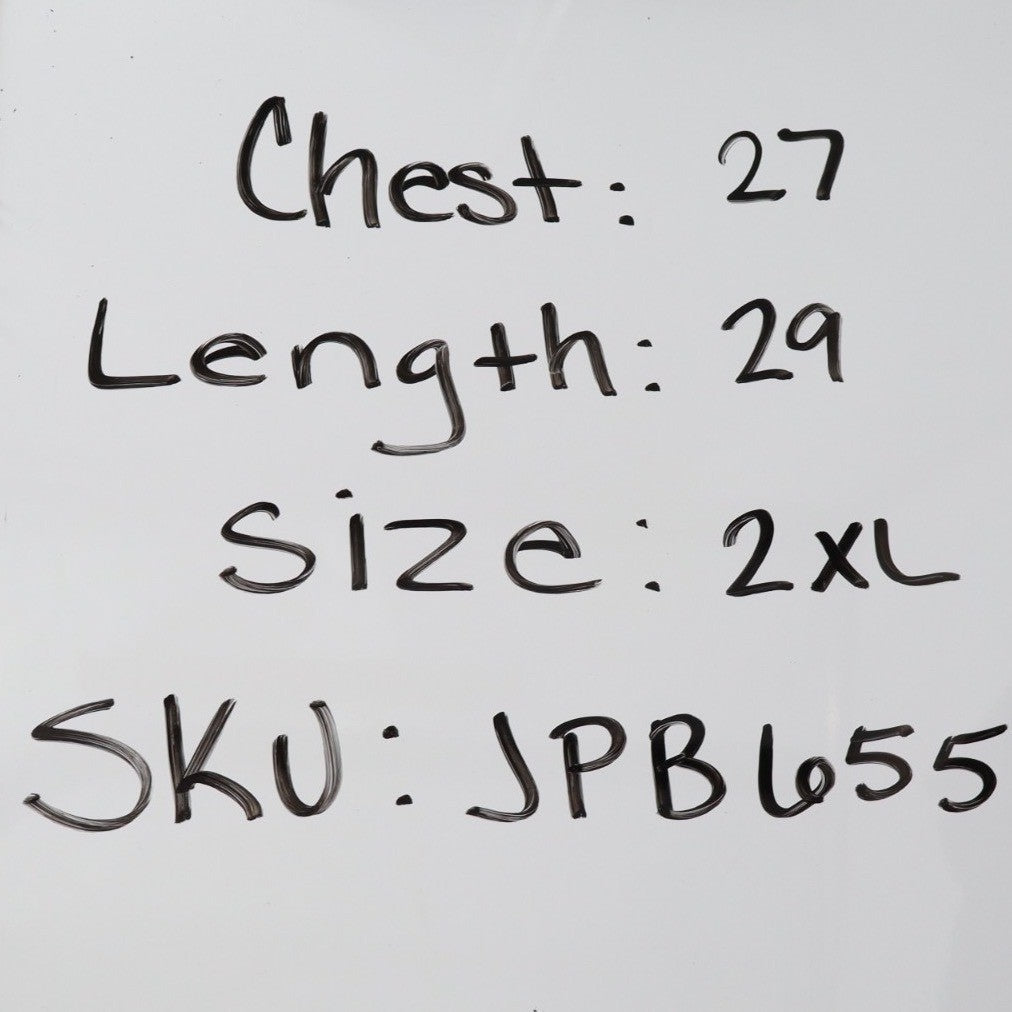 Chest: 27
Length: 29
Size: 2XL
SKU: JPB655